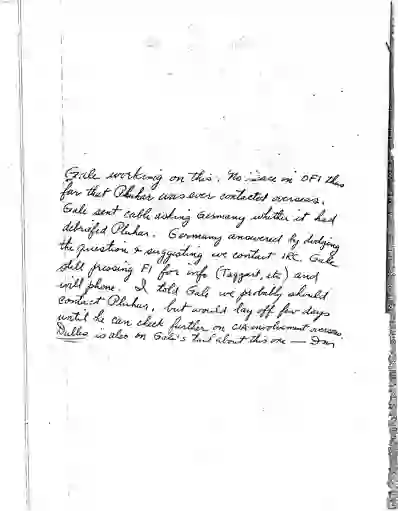 Gale working on this. No trace in OFI thus
far that Pluhar was ever contacted overseas.
Gale sent cable asking Germany whether it had
debriefed Pluhar. Germany answered by dodging
the question & suggesting we contact IRC. Gale
still pressing FI for info (Taggart, etc) and
will phone. I told Gale we probably should
contact Pluhar, but would lay off few days
until he can check further on CIA involvement overseas.
Dulles is also on Gale's tail about this one —